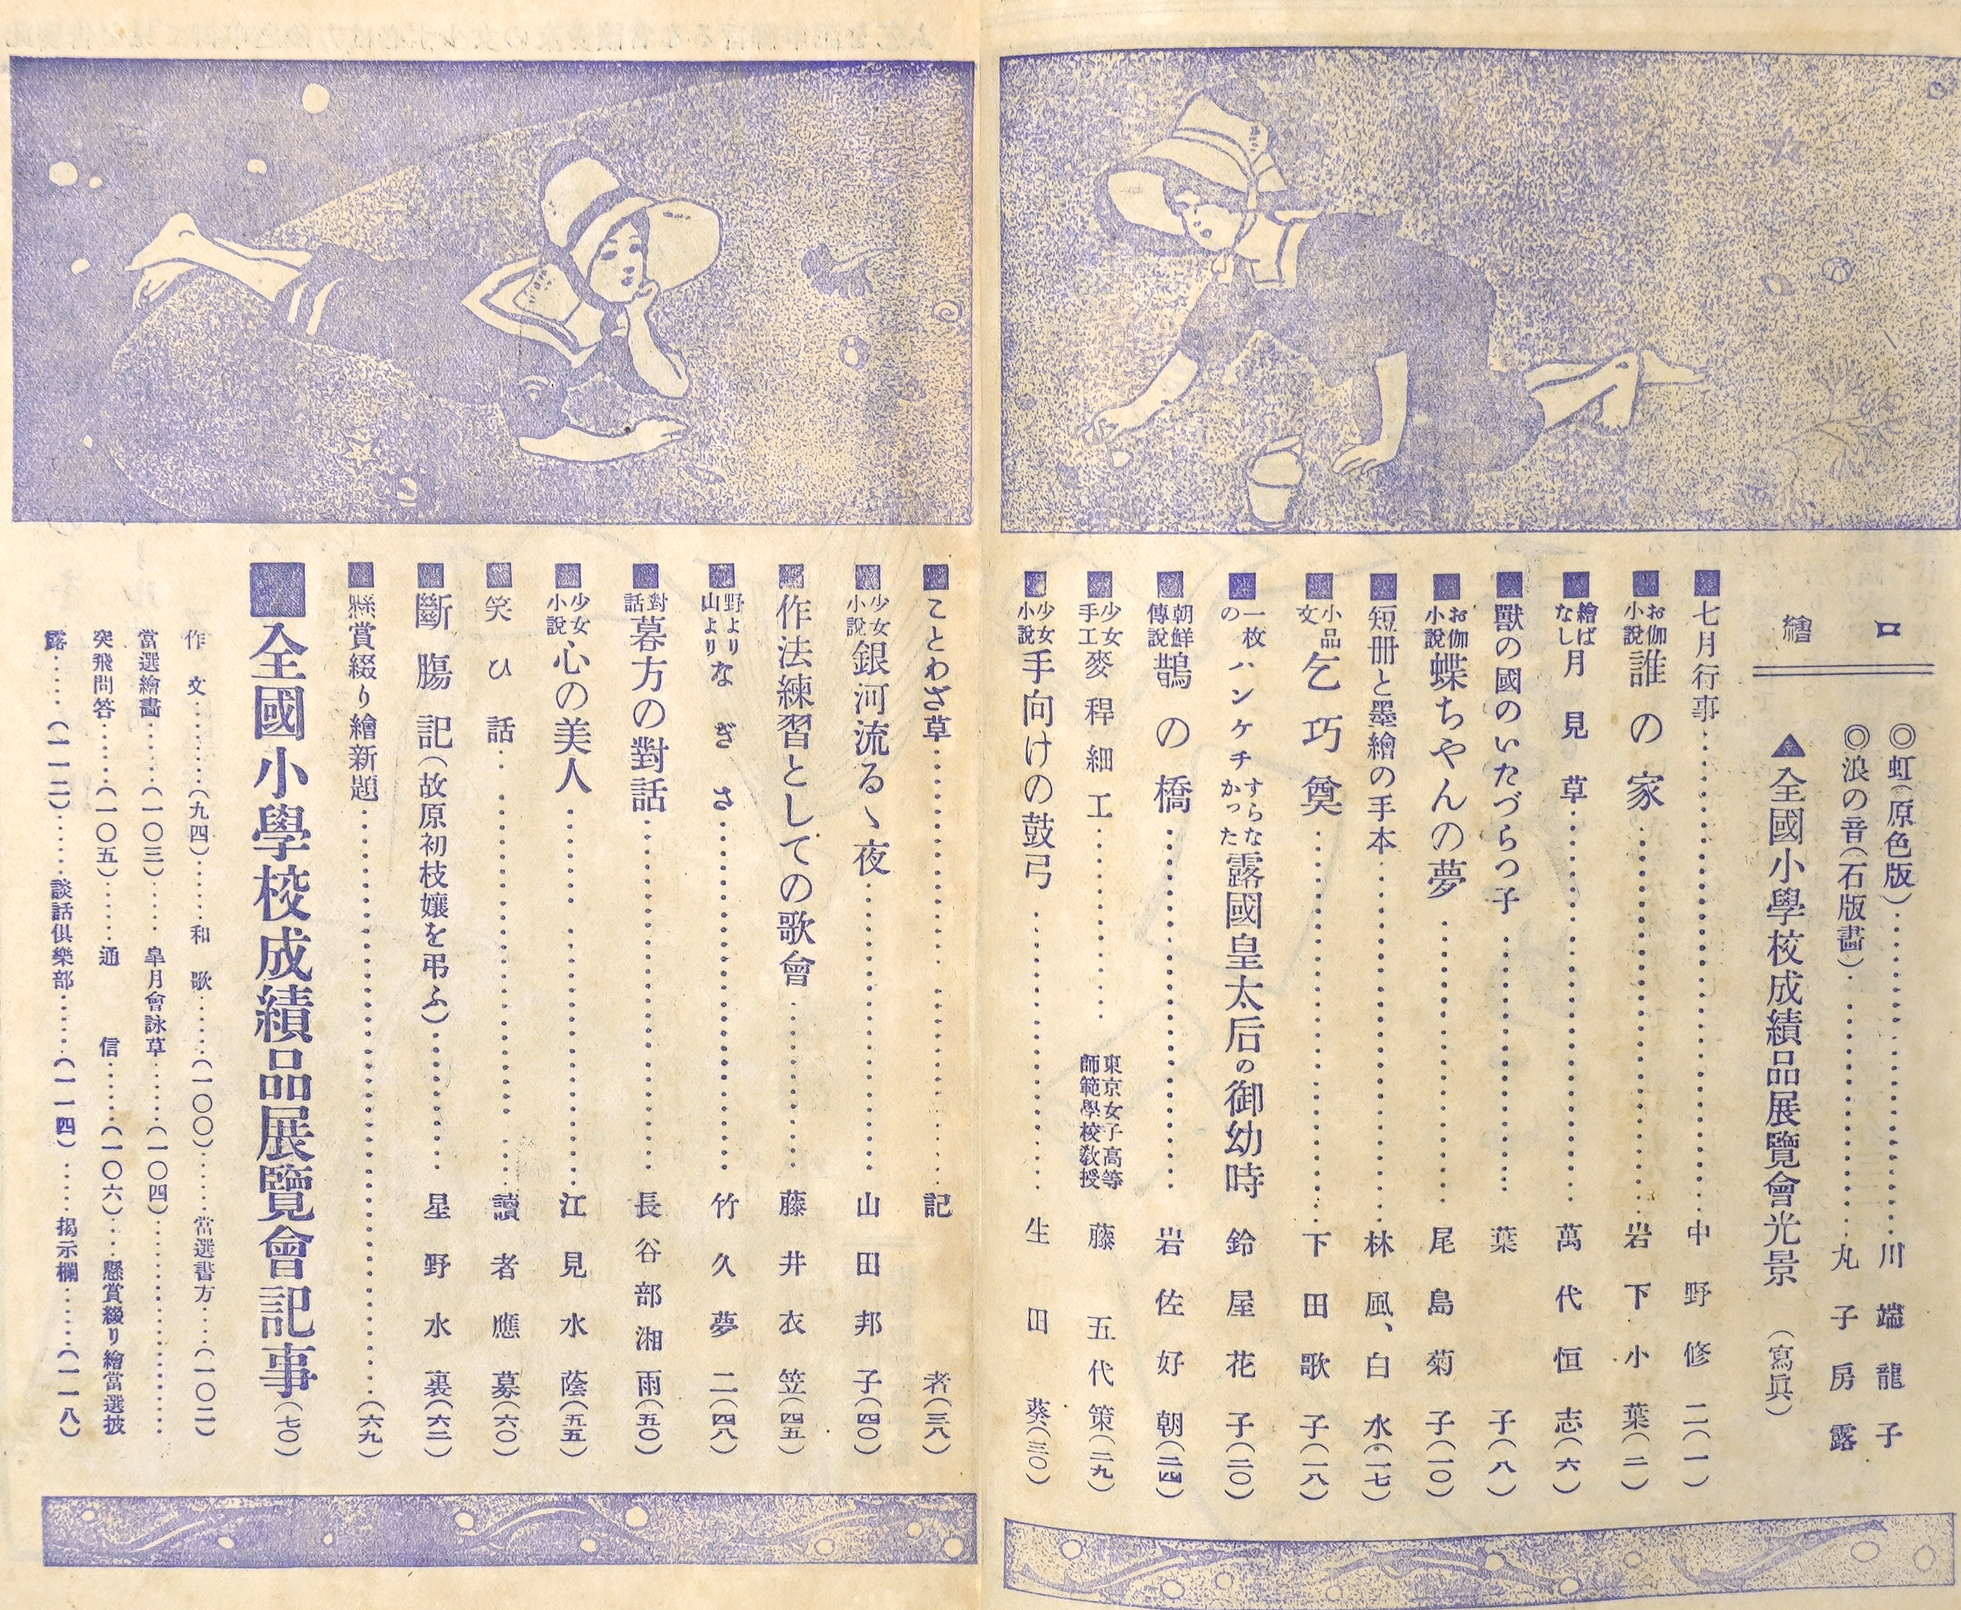 口
繪
◎虹(原色版)……川端龍子
◎浪の音(石版畵)……丸子房露
▲全國小學校成績品展覽會光景(寫眞)
■七月行事……中野修二(一)
■お伽小說 誰の家……岩下小葉(二)
■繪ばなし 月見草……萬代恒志(六)
■獸の國のいたづらつ子……葉子(八)
■お伽小說 蝶ちやんの夢……尾島菊子(一〇)
■短册と墨繪の手本……林風、白水(一七)
■小品文 乞巧奠……下田歌子(一八)
■一枚のハンケチすらなかつた露國皇太后の御幼時 鈴屋花子(二〇)
■朝鮮傳說 鵲の橋……岩佐好朝(二四)
■少女手工 麥稈細工……東京女子高等師範學校敎授 藤五代策(二九)
■少女小說 手向けの鼓弓……生田葵(三〇)
■ことわざ草……記者(三八)
■少女小說 銀河流るゝ夜……山田邦子(四〇)
■作法練習としての歌會……藤井衣笠(四五)
■野より山より なぎさ……竹久夢二(四八)
■對話 暮方の對話……長谷部湘雨(五〇)
■少女小說 心の美人……江見水蔭(五五)
■笑ひ話……讀者應募(六〇)
■斷膓記(故原初枝孃を弔ふ)……星野水裏(六二)
■懸賞綴り繪新題……(六九)
■全國小學校成績品展覽會記事(七〇)
作文……(九四)……和歌……(一〇〇)……當選書方……(一〇二)
當選繪畵……(一〇三)……皐月會詠草……(一〇四)……
突飛問答……(一〇五)……通信……(一〇六)……懸賞綴り繪當選披
露……(一一二)……談話俱樂部……(一一四)……揭示欄……(一一八)